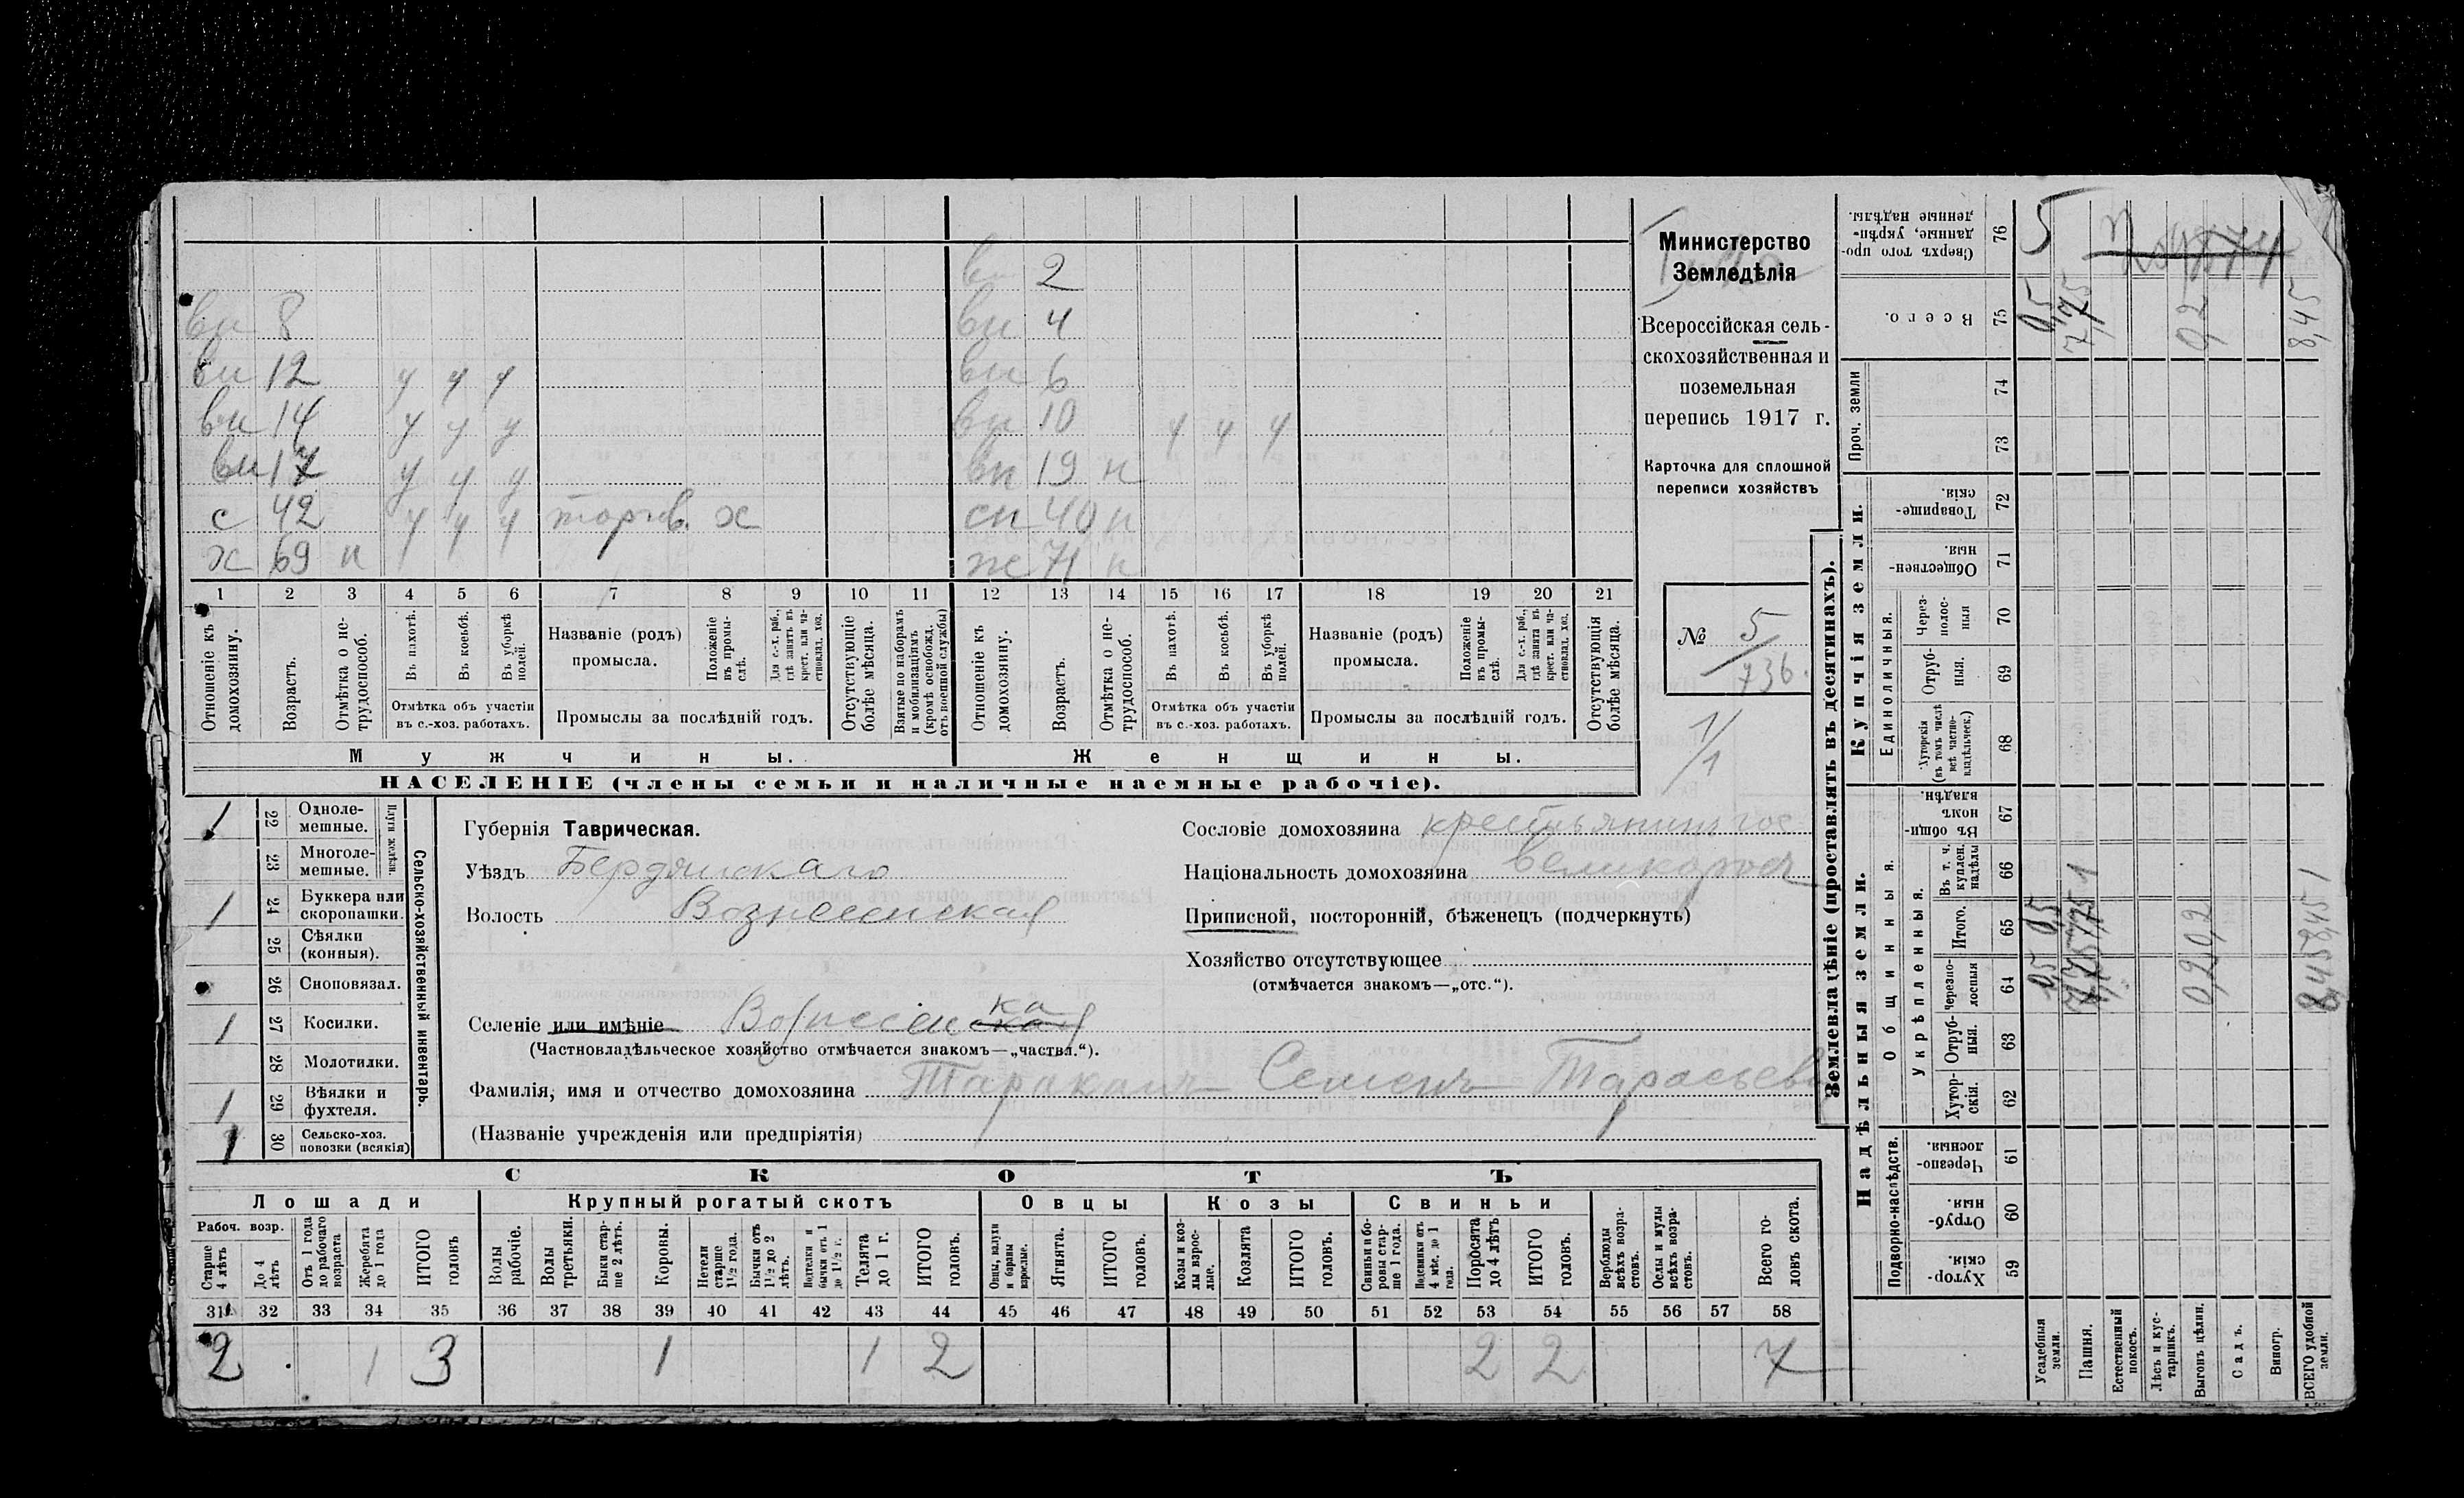 вн 2
вн 8 вн 4
вн 12 у у у вн 6
вн 14 у у у вн 10 у у у
вн 17 у у у вн 19 н
с 42 у у у торгов. х сн 40 н
х 69 н ж 71 н
1 2 3 4 5 6 7 8 9 10 11 12 13 14 15 16 17 18 19 20 21
Отношеніе къ домохозяину.
Возрастъ.
Отмѣтка о не-трудоспособ.
Въ пахотѣ.
Въ косьбѣ.
Въ уборкѣ полей.
Отмѣтка объ участіи
въ с.-хоз. работахъ.
Названіе (родъ)
промысла.
Положеніе въ промы-слѣ.
Для с.-х. раб., гдѣ занятъ въ крест. или ча-стновлад. хоз.
Промыслы за послѣдній годъ.
Отсутствующіе болѣе мѣсяца.
Взятые по наборамъ и мобилизаціямъ (кромѣ освобожд. отъ военной службы)
Отношеніе къ домохозяину.
Возрастъ.
Отмѣтка о не-трудоспособ.
Въ пахотѣ.
Въ косьбѣ.
Въ уборкѣ полей.
Отмѣтка объ участіи
въ с.-хоз. работахъ.
Названіе (родъ)
промысла.
Положеніе въ промы-слѣ.
Для с.-х. раб., гдѣ занята въ крест. или ча-стновлад. хоз.
Промыслы за послѣдній годъ.
Отсутствующія болѣе мѣсяца.
Мужчины. Женщины.
НАСЕЛЕНІЕ (члены семьи и наличные наемные рабочіе).
Министерство
Земледѣлія
Всероссійская сель-
скохозяйственная и
поземельная
перепись 1917 г.
Карточка для сплошной
переписи хозяйствъ
№ 5
736.
1/1
1 22 Одноле-мешные.
23 Многоле-мешные.
Плуги желѣзн.
1 24 Буккера или скоропашки.
25 Сѣялки (конныя).
26 Сноповязал.
1 27 Косилки.
28 Молотилки.
1 29 Вѣялки и фухтеля.
1 30 Сельско-хоз. повозки (всякія)
Сельско-хозяйственный инвентарь.
Губернія Таврическая.
Уѣздъ Бердянскаго
Волость Вознесенская
Селеніе или имѣніе Вознесенка
(Частновладѣльческое хозяйство отмѣчается знакомъ—„частвл.“).
Фамилія, имя и отчество домохозяина Тараканъ Семенъ Тарасьев
(Названіе учрежденія или предпріятія)
Сословіе домохозяина крестьянинъ гос
Національность домохозяина великоросъ
Приписной, посторонній, бѣженецъ (подчеркнуть)
Хозяйство отсутствующее
(отмѣчается знакомъ—„отс.“).
СКОТЪ
Лошади Крупный рогатый скотъ Овцы Козы Свиньи
Рабоч. возр.
Старше 4 лѣтъ
До 4 лѣтъ
Отъ 1 года до рабочаго возраста
Жеребята до 1 года
ИТОГО головъ
Волы рабочіе.
Волы третьяки.
Быки стар-ше 2 лѣтъ.
Коровы.
Нетели старше 1½ года.
Бычки отъ 1½ до 2 лѣтъ.
Подтелки и бычки отъ 1 до 1½ г.
Телята до 1 г.
ИТОГО головъ.
Овцы, валухи и бараны взрослые.
Ягнята.
ИТОГО головъ.
Козы и коз-лы взрос-лые.
Козлята
ИТОГО головъ.
Свиньи и бо-ровы стар-ше 1 года.
Подсвинки отъ 4 мѣс. до 1 года.
Поросята до 4 лѣтъ
ИТОГО головъ.
Верблюды всѣхъ возра-стовъ.
Ослы и мулы всѣхъ возра-стовъ.
Всего го-ловъ скота.
31 32 33 34 35 36 37 38 39 40 41 42 43 44 45 46 47 48 49 50 51 52 53 54 55 56 57 58
2 1 3 1 1 2 2 2 7
Землевладѣніе (проставлять въ десятинахъ).
Сверхъ того про-данные, укрѣп-ленные надѣлы. 76 5
Всего. 75 0,5 7,75 0,2 8,45
Купчія земли.
Проч. земли 74
73
Товарище-скія. 72
Обществен-ныя. 71
Единоличныя.
Через-полос-ныя 70
Отруб-ныя. 69
Хуторскія (въ томъ числѣ всѣ частно-владѣльческ.) 68
Надѣльныя земли.
Общинныя.
Въ общин-номъ владѣн. 67
Укрѣпленныя.
Въ т. ч. куплен. надѣлы 66 1 1
Итого. 65 0,5 7,75 0,2 8,45
Черезпо-лосныя 64 0,5 7,75 0,2 8,45
Отруб-ныя. 63
Хутор-скія. 62
Подворно-наслѣдств.
Черезпо-лосныя. 61
Отруб-ныя. 60
Хутор-скія. 59
Усадебныя земли.
Пашня.
Естественный покосъ.
Лѣсъ и кус-тарникъ.
Выгонъ цѣлин.
Садъ.
Виногр.
ВСЕГО удобной земли.